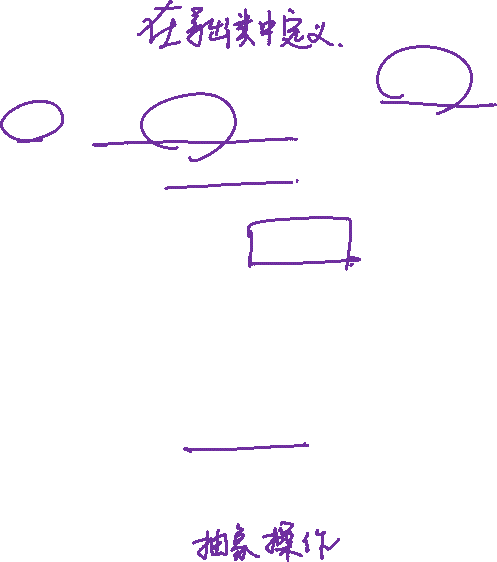 在导出类中定义.
抽象操作